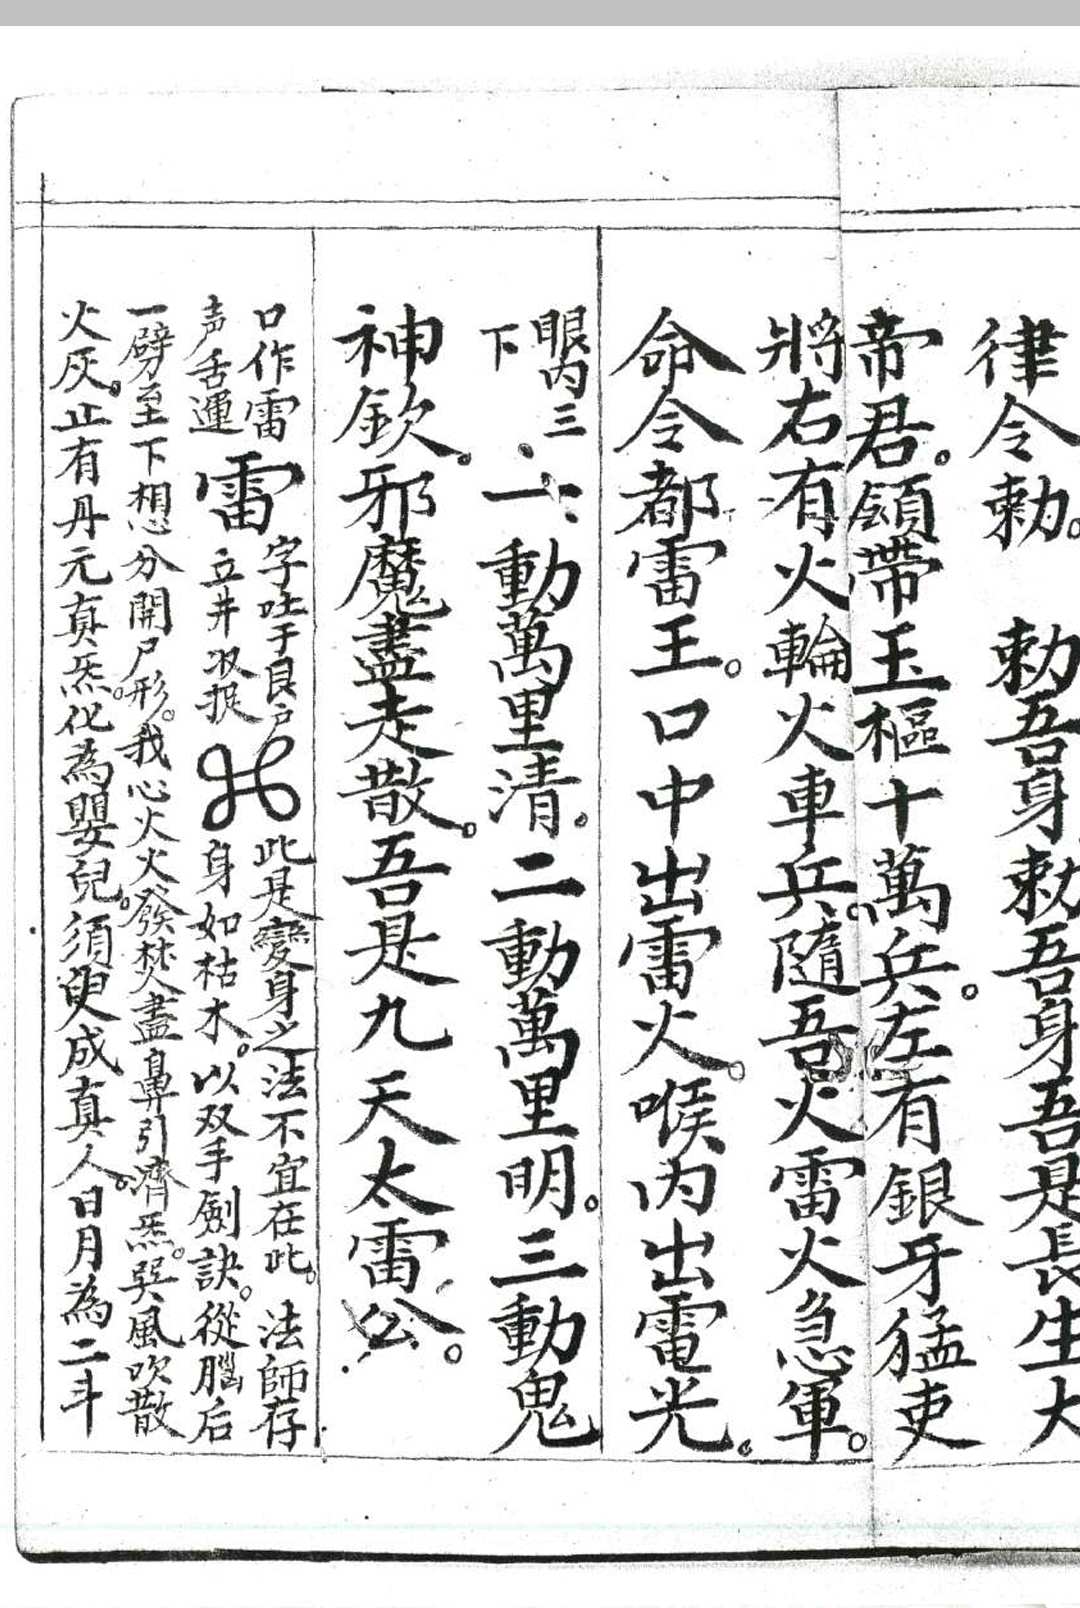 律令勅。　勅吾身勅吾身吾是長生大
帝君。領帶玉樞十萬兵。左有銀牙猛吏
將右有火輪火車兵。隨吾火雷火急軍。
命令都雷王。口中出雷火。喉內出電光。
眼內三下一動萬里清。二動萬里明。三動鬼
神欽。邪魔盡走散。吾是九天太雷公。
口作雷
声舌運
雷
字吐于艮户
立井双捉
此是變身之法不宜在此。法師存
身如枯木。以双手劍訣。從腦后
一劈至下想分開尸形。我心火火發焚盡鼻引濟炁。巽風吹散
火灰。止有丹元真炁。化為嬰兒。須臾成真人。日月為二斗